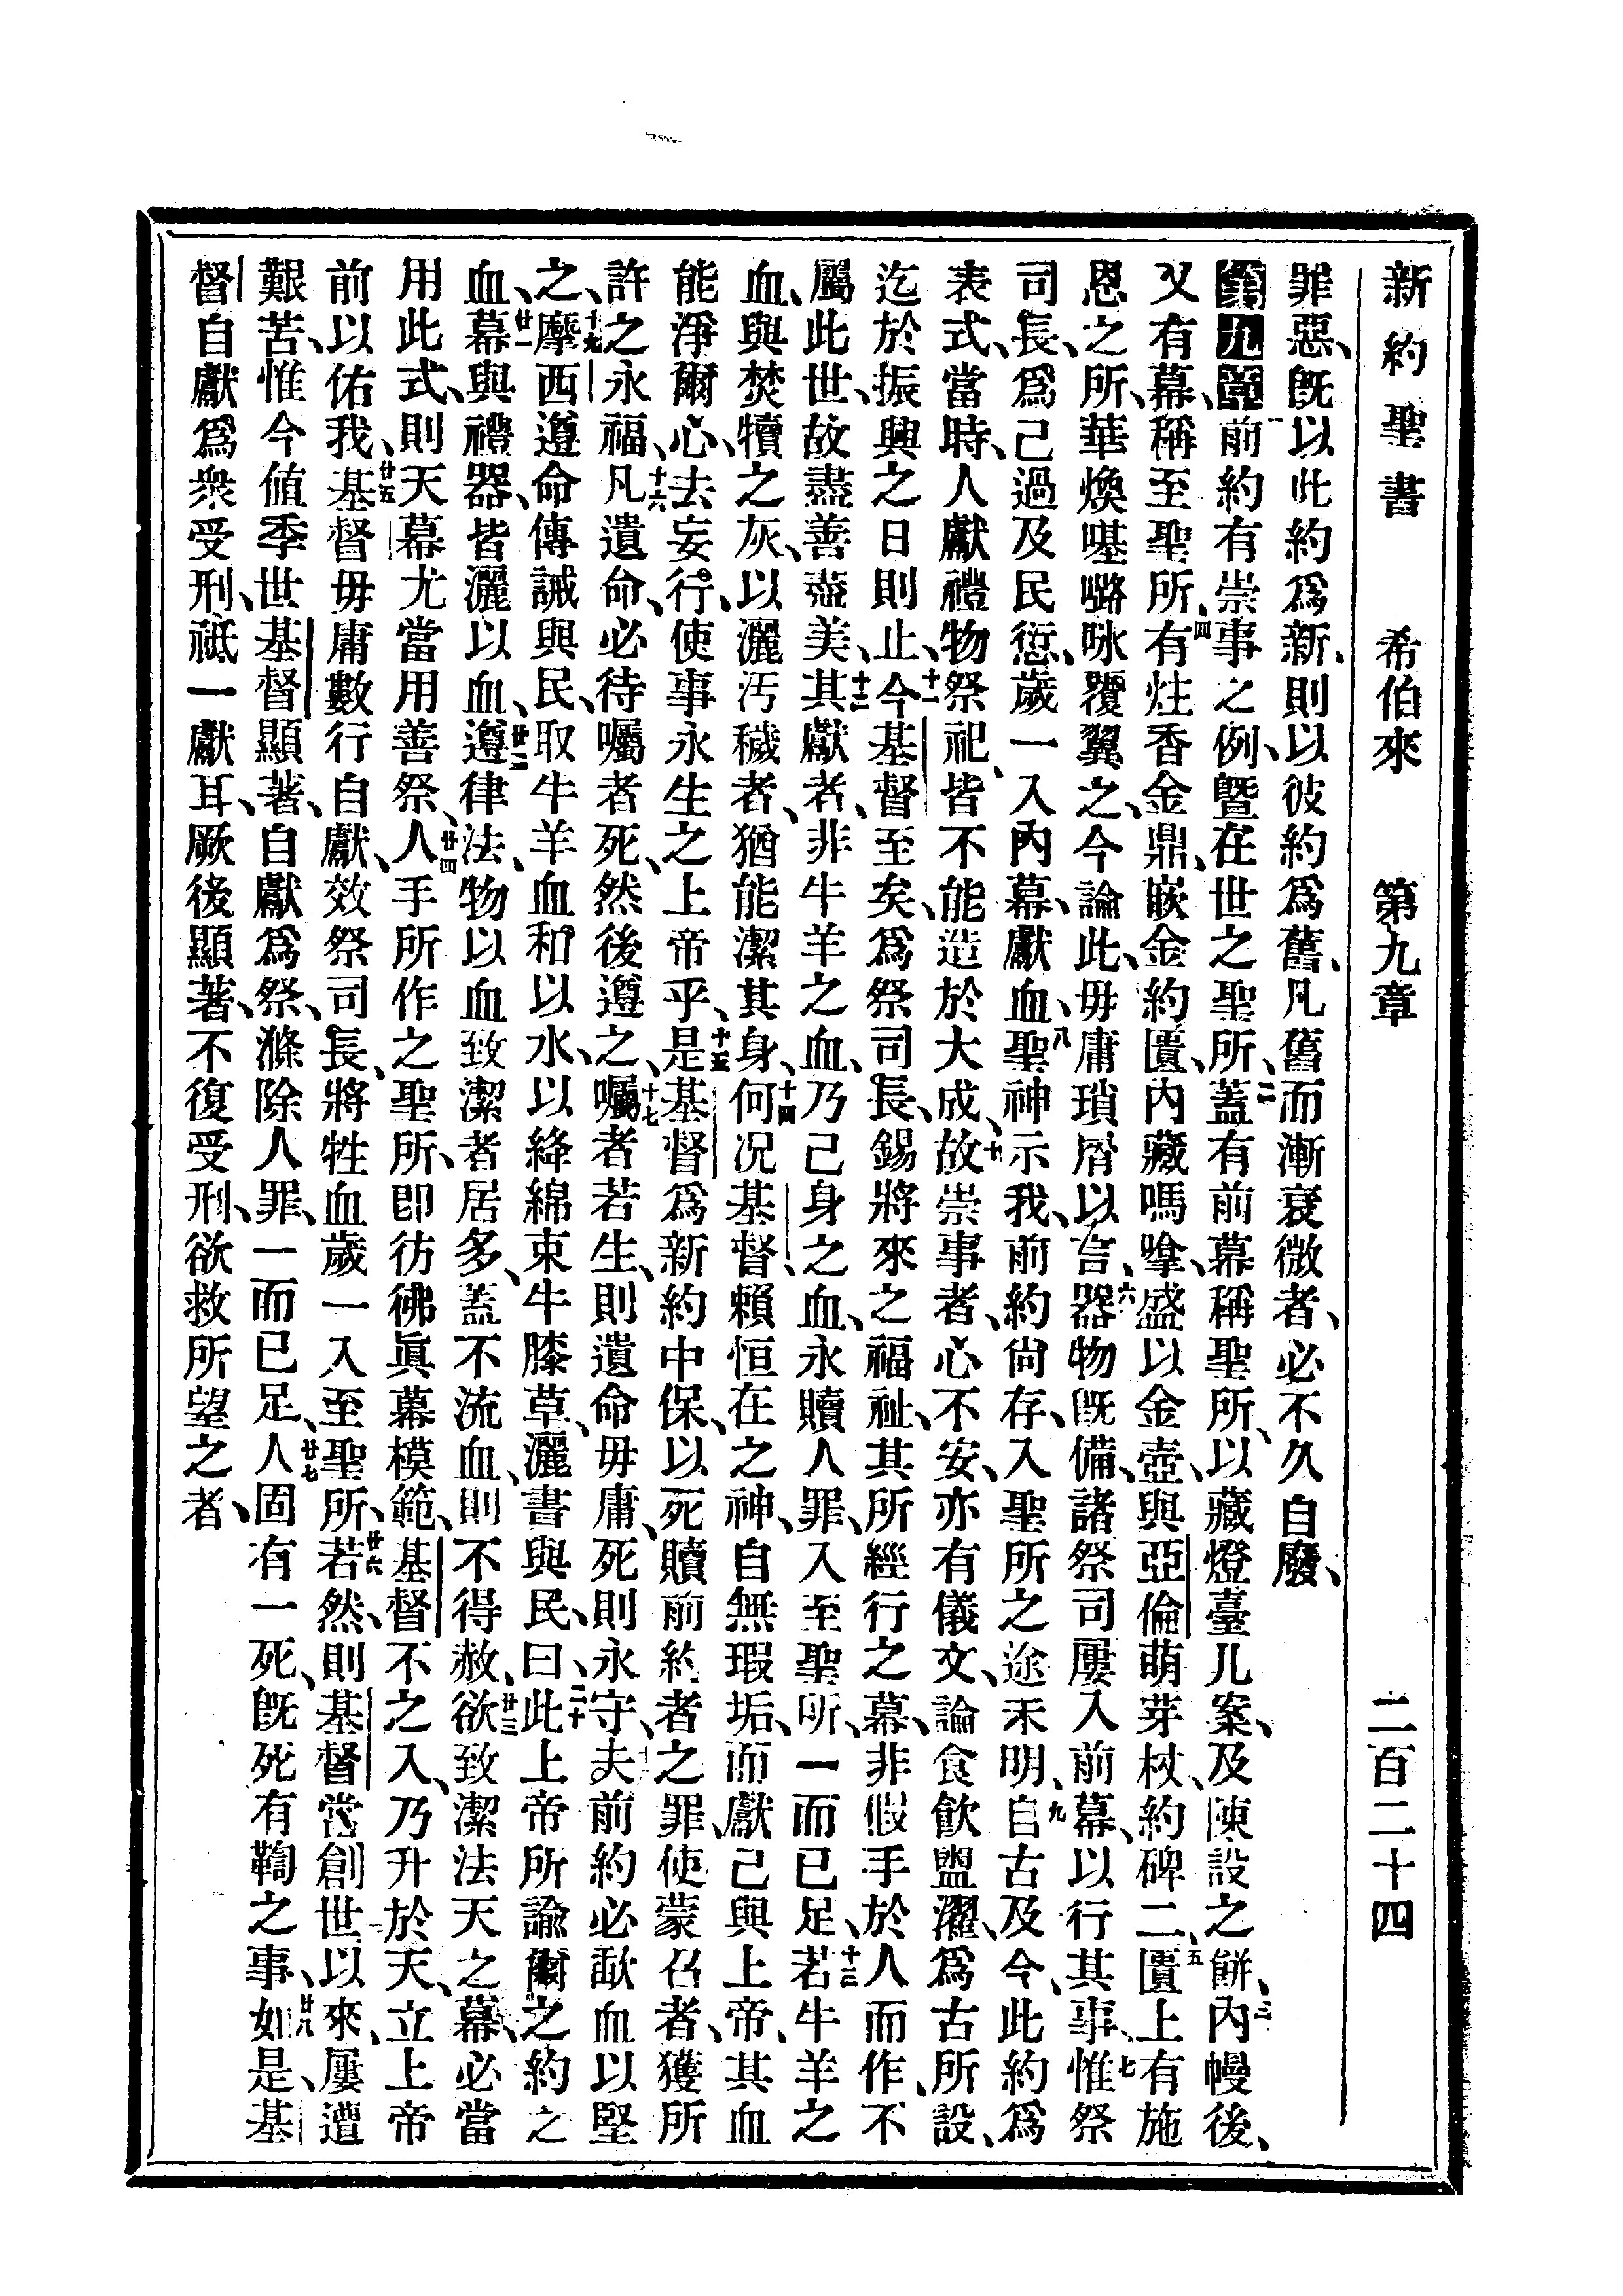 新約聖書　希伯來　第九章　二百二十四
罪惡、旣以此約爲新、則以彼約爲舊、凡舊而漸衰微者、必不久自廢、
第九章 一前約有崇事之例、曁在世之聖所、二蓋有前幕稱聖所、以藏燈臺几案、及陳設之餅、三內幔後、
又有幕、稱至聖所、四有炷香金鼎、嵌金約匱、內藏嗎嗱、盛以金壺、與亞倫萌芽杖、約碑二、五匱上有施
恩之所、華煥𠼻嚧咏覆翼之、今論此、毋庸瑣屑以言、六器物旣備、諸祭司屢入前幕、以行其事、七惟祭
司長、爲己過及民愆、歲一入內幕、獻血、八聖神示我、前約尙存、入聖所之途未明、九自古及今、此約爲
表式、當時、人獻禮物祭祀、皆不能造於大成、十故崇事者、心不安、亦有儀文、論食飮盥濯、爲古所設、
迄於振興之日則止、十一今基督至矣、爲祭司長、錫將來之福祉、其所經行之幕、非假手於人而作、不
屬此世、故盡善盡美、十二其獻者、非牛羊之血、乃己身之血、永贖人罪、入至聖所、一而已足、十三若牛羊之
血、與焚犢之灰、以灑汚穢者、猶能潔其身、十四何况基督、賴恒在之神、自無瑕垢、而獻己與上帝、其血
能淨爾心、去妄行、使事永生之上帝乎、十五是基督爲新約中保、以死贖前約者之罪、使蒙召者、獲所
許之永福、十六凡遺命、必待囑者死、然後遵之、十七囑者若生、則遺命毋庸、死則永守、十八夫前約必歃血以堅
之、十九摩西遵命傳誡與民、取牛羊血和以水、以絳綿束牛膝草、灑書與民、曰、二十此上帝所諭爾之約之
血、廿一幕與禮器、皆灑以血、廿二遵律法、物以血致潔者居多、蓋不流血、則不得赦、廿三欲致潔法天之幕、必當
用此式、則天幕尤當用善祭、廿四人手所作之聖所、卽彷彿眞幕模範、基督不之入、乃升於天、立上帝
前以佑我、廿五基督毋庸數行自獻、效祭司長、將牲血歲一入至聖所、廿六若然、則基督當創世以來、屢遭
艱苦、惟今値季世、基督顯著、自獻爲祭、滌除人罪、一而已足、廿七人固有一死、旣死有鞫之事、廿八如是、基
督自獻爲衆受刑、祗一獻耳、厥後顯著、不復受刑、欲救所望之者、